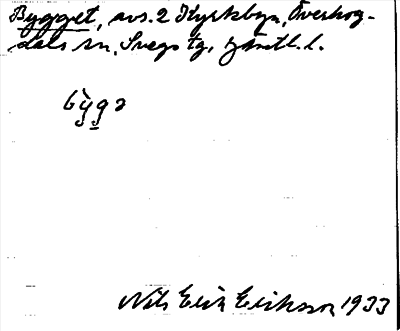 Bygget, avs. 2 Kyrkbyn, Överhog-
dals sn, Svegs tg, Jämtl. l.
bỳgə
Nils Erik Eriksson 1933